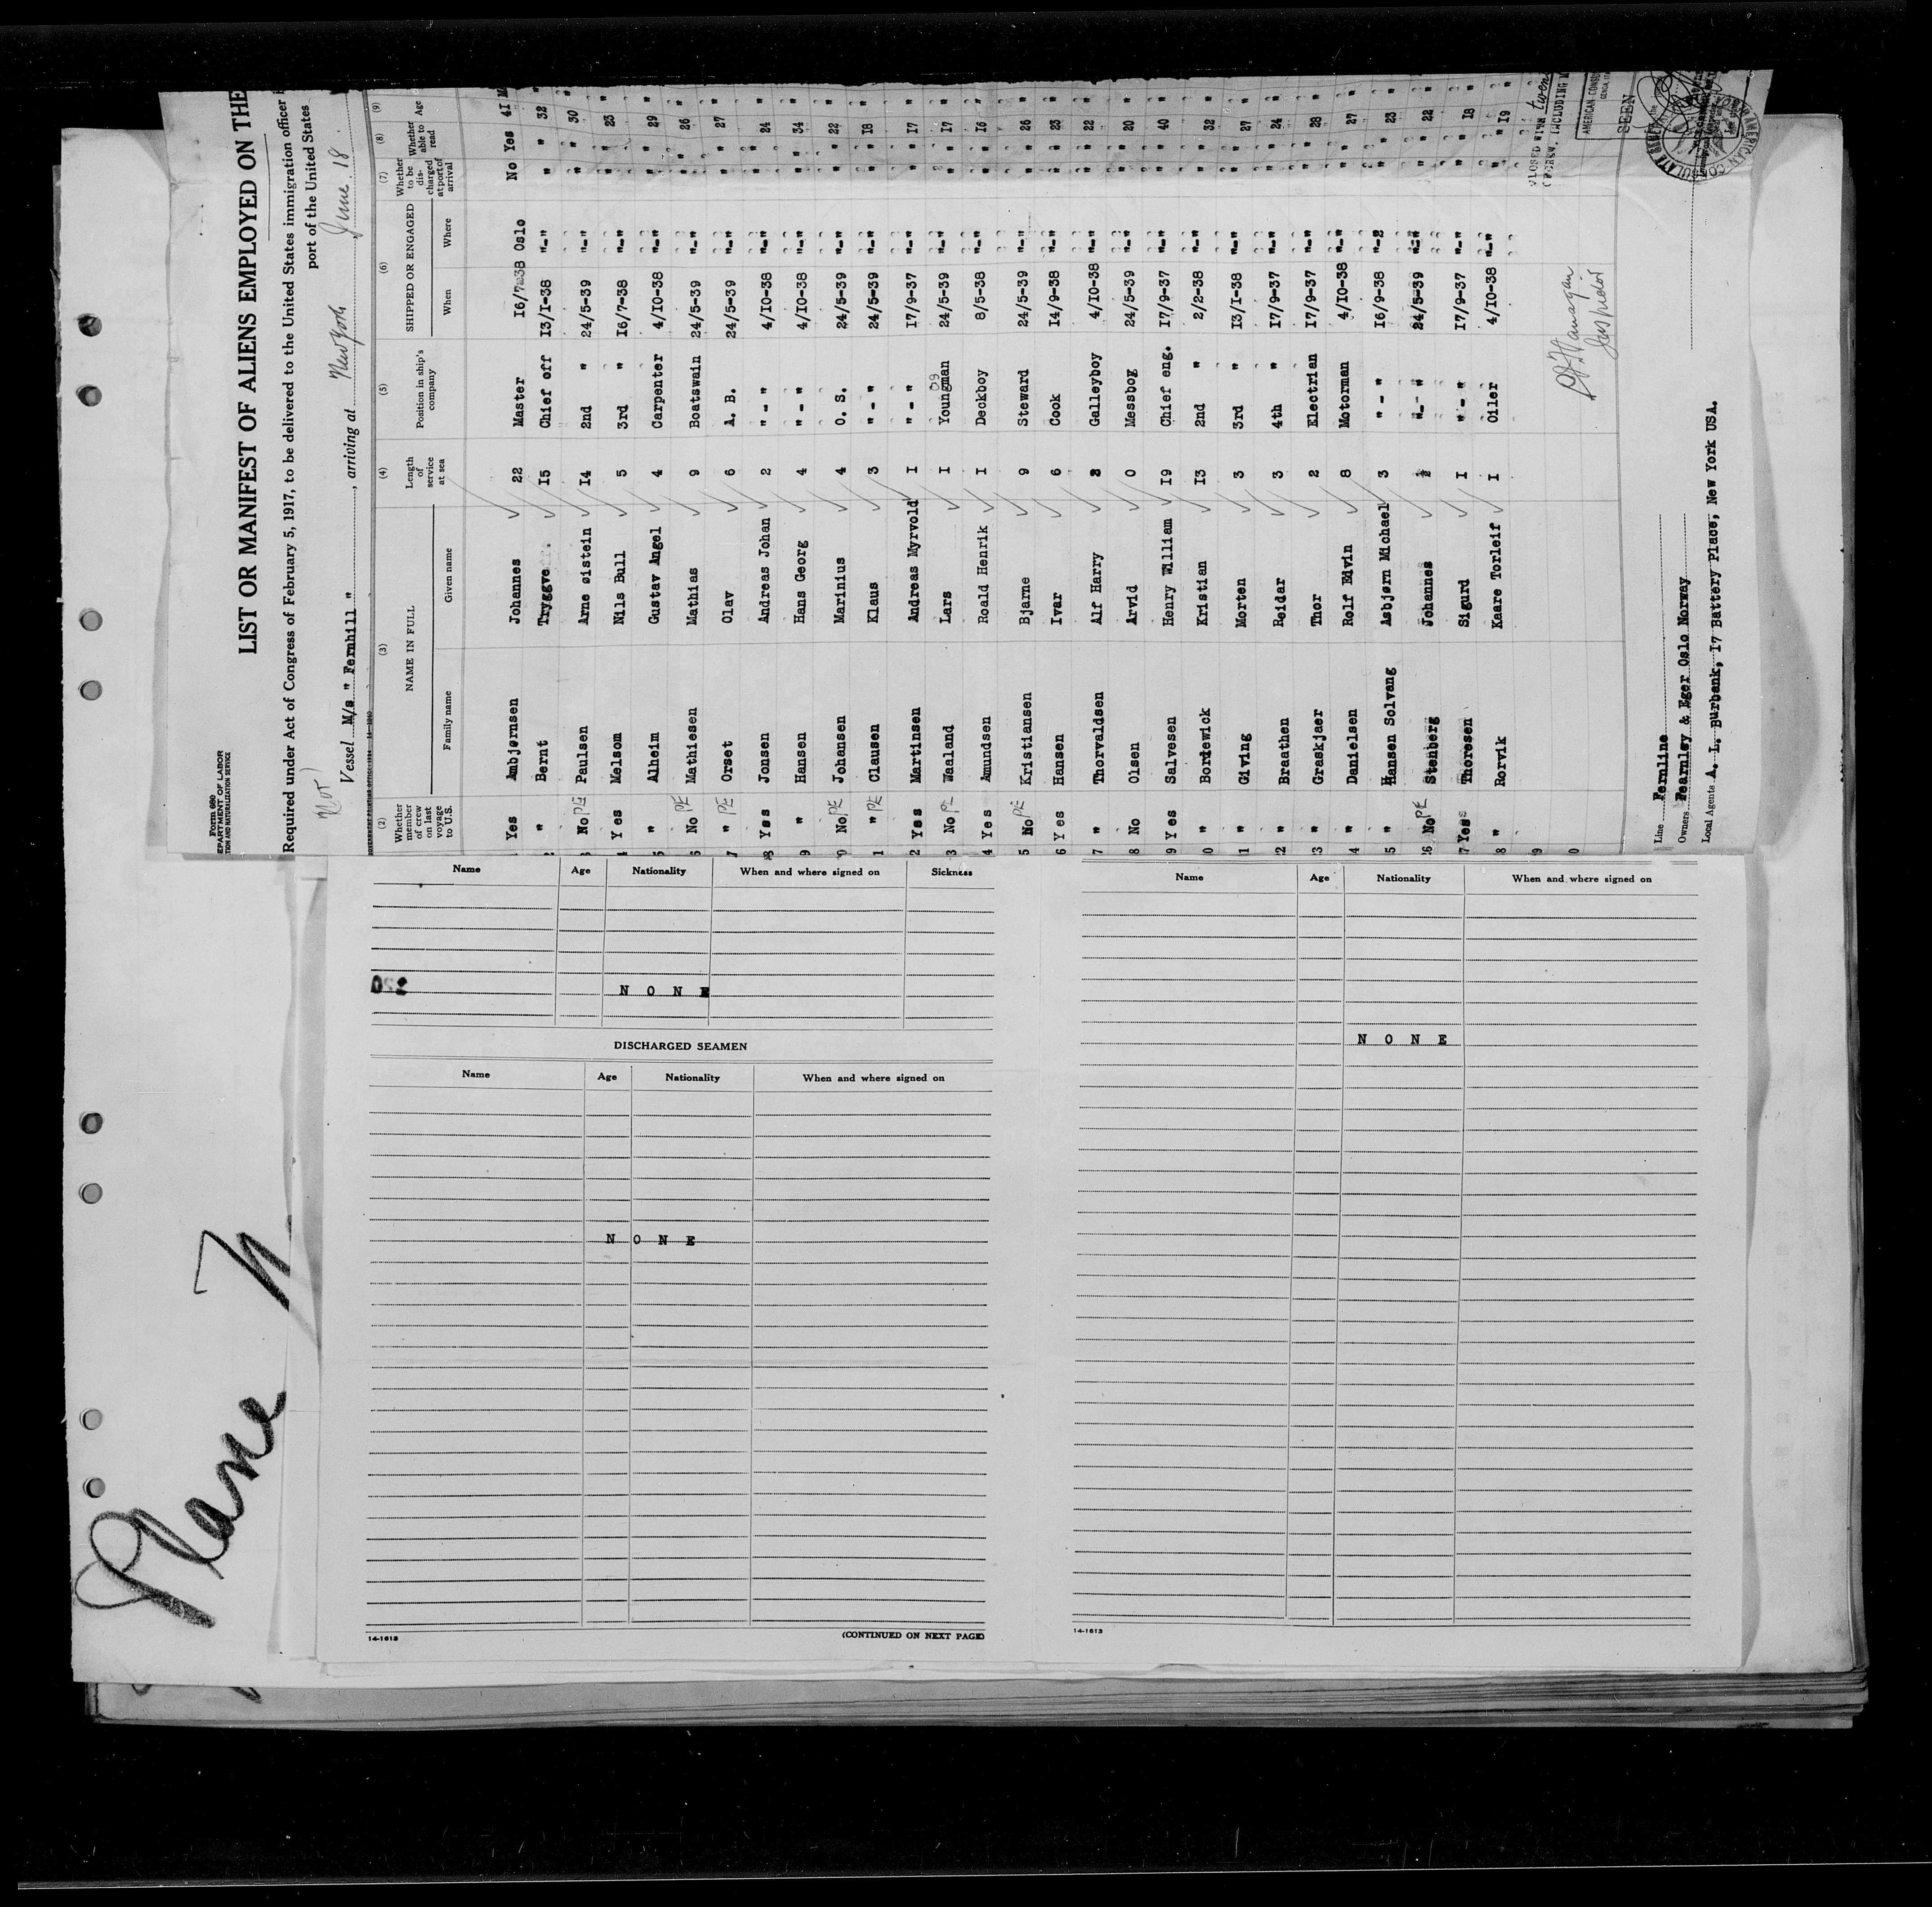 Form 680
EPARTMENT OF LABOR
TION AND NATURALIZATION SERVICE
LIST OR MANIFEST OF ALIENS EMPLOYED ON THE
Required under Act of Congress of February 5, 1917, to be delivered to the United States immigration officer
port of the United States
Vessel M/s " Fernhill ", arriving at New York June 18
(2) (3) (4) (5) (6) (7) (8) (9)
Whether member of crew on last voyage to U.S. NAME IN FULL Length of service at sea Position in ship's company SHIPPED OR ENGAGED Whether to be discharged at port of arrival Whether able to read Age
Family name Given name When Where
Yes Ambjørnsen Johannes 22 Master 16/7-38 Oslo No Yes 41
2 " Bernt Tryggve 15 Chief off 13/1-38 "-" " " 32
No PE Paulsen Arne Øistein 14 2nd " 24/5-39 "-" " " 30
4 Yes Melsom Nils Bull 5 3rd " 16/7-38 "-" " " 23
5 " Alheim Gustav Angel 4 Carpenter 4/10-38 "-" " " 29
6 No PE Mathiesen Mathias 9 Boatswain 24/5-39 "-" " " 26
7 " PE Orset Olav 6 A. B. 24/5-39 "-" " " 27
8 Yes Jonsen Andreas Johan 2 "-" 4/10-38 "-" " " 24
9 " Hansen Hans Georg 4 "-" 4/10-38 "-" " " 34
0 No PE Johansen Marinius 4 O. S. 24/5-39 "-" " " 22
1 " PE Clausen Klaus 3 "-" 24/5-39 "-" " " 18
2 Yes Martinsen Andreas Myrvold 1 "-" 17/9-37 "-" " " 17
3 No PE Waaland Lars 1 Youngman 24/5-39 "-" " " 17
4 Yes Amundsen Roald Henrik 1 Deckboy 8/5-38 "-" " " 16
5 No PE Kristiansen Bjarne 9 Steward 24/5-39 "-" " " 26
6 Yes Hansen Ivar 6 Cook 14/9-38 "-" " " 23
7 " Thorvaldsen Alf Harry Galleyboy 4/10-38 "-" " " 22
8 No Olsen Arvid 0 Messbog 24/5-39 "-" " " 20
9 Yes Salvesen Henry William 19 Chief eng. 17/9-37 "-" " " 40
0 " Bordewick Kristian 13 2nd " 2/2-38 "-" " " 32
1 " Giving Morten 3 3rd " 13/1-38 "-" " " 27
22 " Braathen Reidar 3 4th " 17/9-37 "-" " " 24
23 " Graskjaer Thor 2 Electrian 17/9-37 "-" " " 28
4 " Danielsen Rolf Edvin 8 Motorman 4/10-38 "-" " " 27
5 " Hansen Solvang Asbjørn Michael 3 "-" 16/9-38 " " 23
26 No PE Stenberg Johannes "-" 24/5-39 "-" " " 22
7 Yes Thoresen Sigurd 1 "-" 17/9-37 "-" " " 18
8 " Rorvik Kaare Torleif 1 Oiler 4/10-38 "-" " " 19
9
0
CLOSED WITH twen
INCLUDING M
AMERICAN CONSU
SEEN
Inspector
Line Fernline
Owners Fearnley & Eger Oslo Norway
Local Agents A. L. Burbank, 17 Battery Place, New York USA.
Name Age Nationality When and where signed on Sickness
N O N E
DISCHARGED SEAMEN
Name Age Nationality When and where signed on
N O N E
14-1613
(CONTINUED ON NEXT PAGE)
Name Age Nationality When and where signed on
N O N E
14-1613